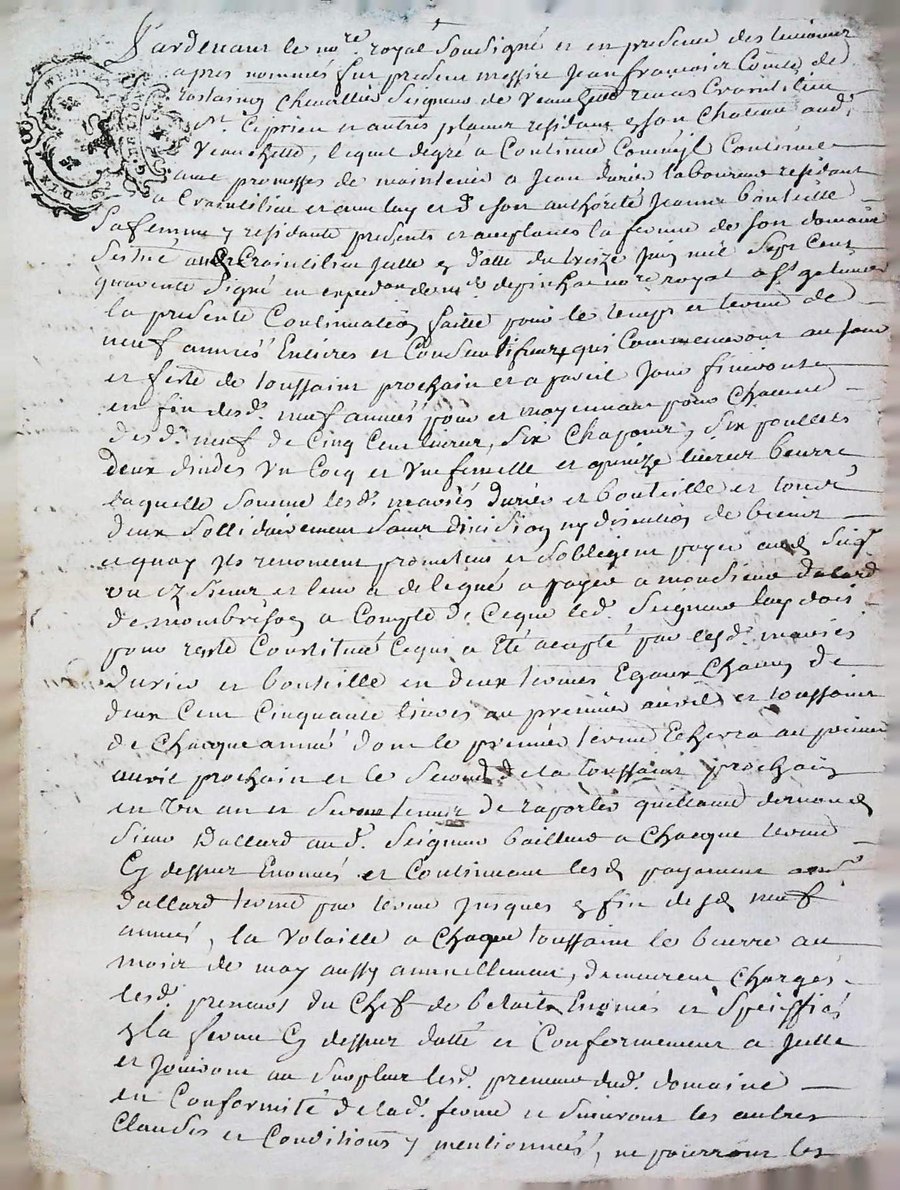 Pardevant le no.re royal Soussigné et en presence des temoins
apres nommés fut present messire Jean françois Comte de
rostaing Chevallier Seigneur de Veauchette rivas Craintilieu
St. Ciprien et autres places residant en son Chateau aud.
Veauchette, lequel degré a Continué Comme jl Continue
avec promesses de maintenir a Jean durier laboureur residant
a Craintilieu et avec luy et de son authorité Jeanne bouteille
Sa femme y residante presents et acceptants la ferme de son domaine
Scitué aud Craintilieu Jcelle en datte du treize Juin mil Sept Cent
quarante Signé en expedition de me. no.re royal a St. galmier
la presente Continuation faitte pour le temps et terme de
neuf années Entieres et Consecutives qui Commenceront au jour
et feste de toussaint prochain et a pareil Jour finiront
en fin desd. neuf années pour et moyennant pour Chacune
desd. neuf de Cinq Cent livres, Six Chapons, Six poullets
deux dindes Un Cocq et Une femelle et quinze livres beurre
laquelle Somme lesd. mariés durier et bouteille et tous
deux Sollidairement Sans division ny discution de biens
a quoy Jls renoncent promettent et Sobligent payer aud Seigr
de mombrison a Compte de Ceque led. Seigneur luy doit
pour rente Constituée Cequi a Eté accepté par lesd. mariés
Durier et bouteille en deux termes Egaux Chacun de
deux Cent Cinquante livres au premier avril et toussaint
de Chacque année dont le premier terme Echerra au premier
avril prochain et le Second de la toussaint prochain
en Un an et Seront tenus de raporter quittance dumond
Sieur Dallard aud. Seigneur bailleur a Chacque terme
Cy dessus Enoncés et Continuant lesd payement aud Sr
Dallard terme par terme Jusques en fin desd neuf
années, la Volaille a Chaque toussaint le beurre au
mois de may aussy annuellement, demeurent Chargés
lesd. preneurs du Chef de betail Enoncés et Speciffiés
en la ferme Cy dessus datté et Conformement a Jcelle
et Jouiront au Surplus lesd. preneurs dud. domaine
en Conformité de lad. ferme et Suivront les autres
Clauses et Conditions y mentionnées, ne pourront les